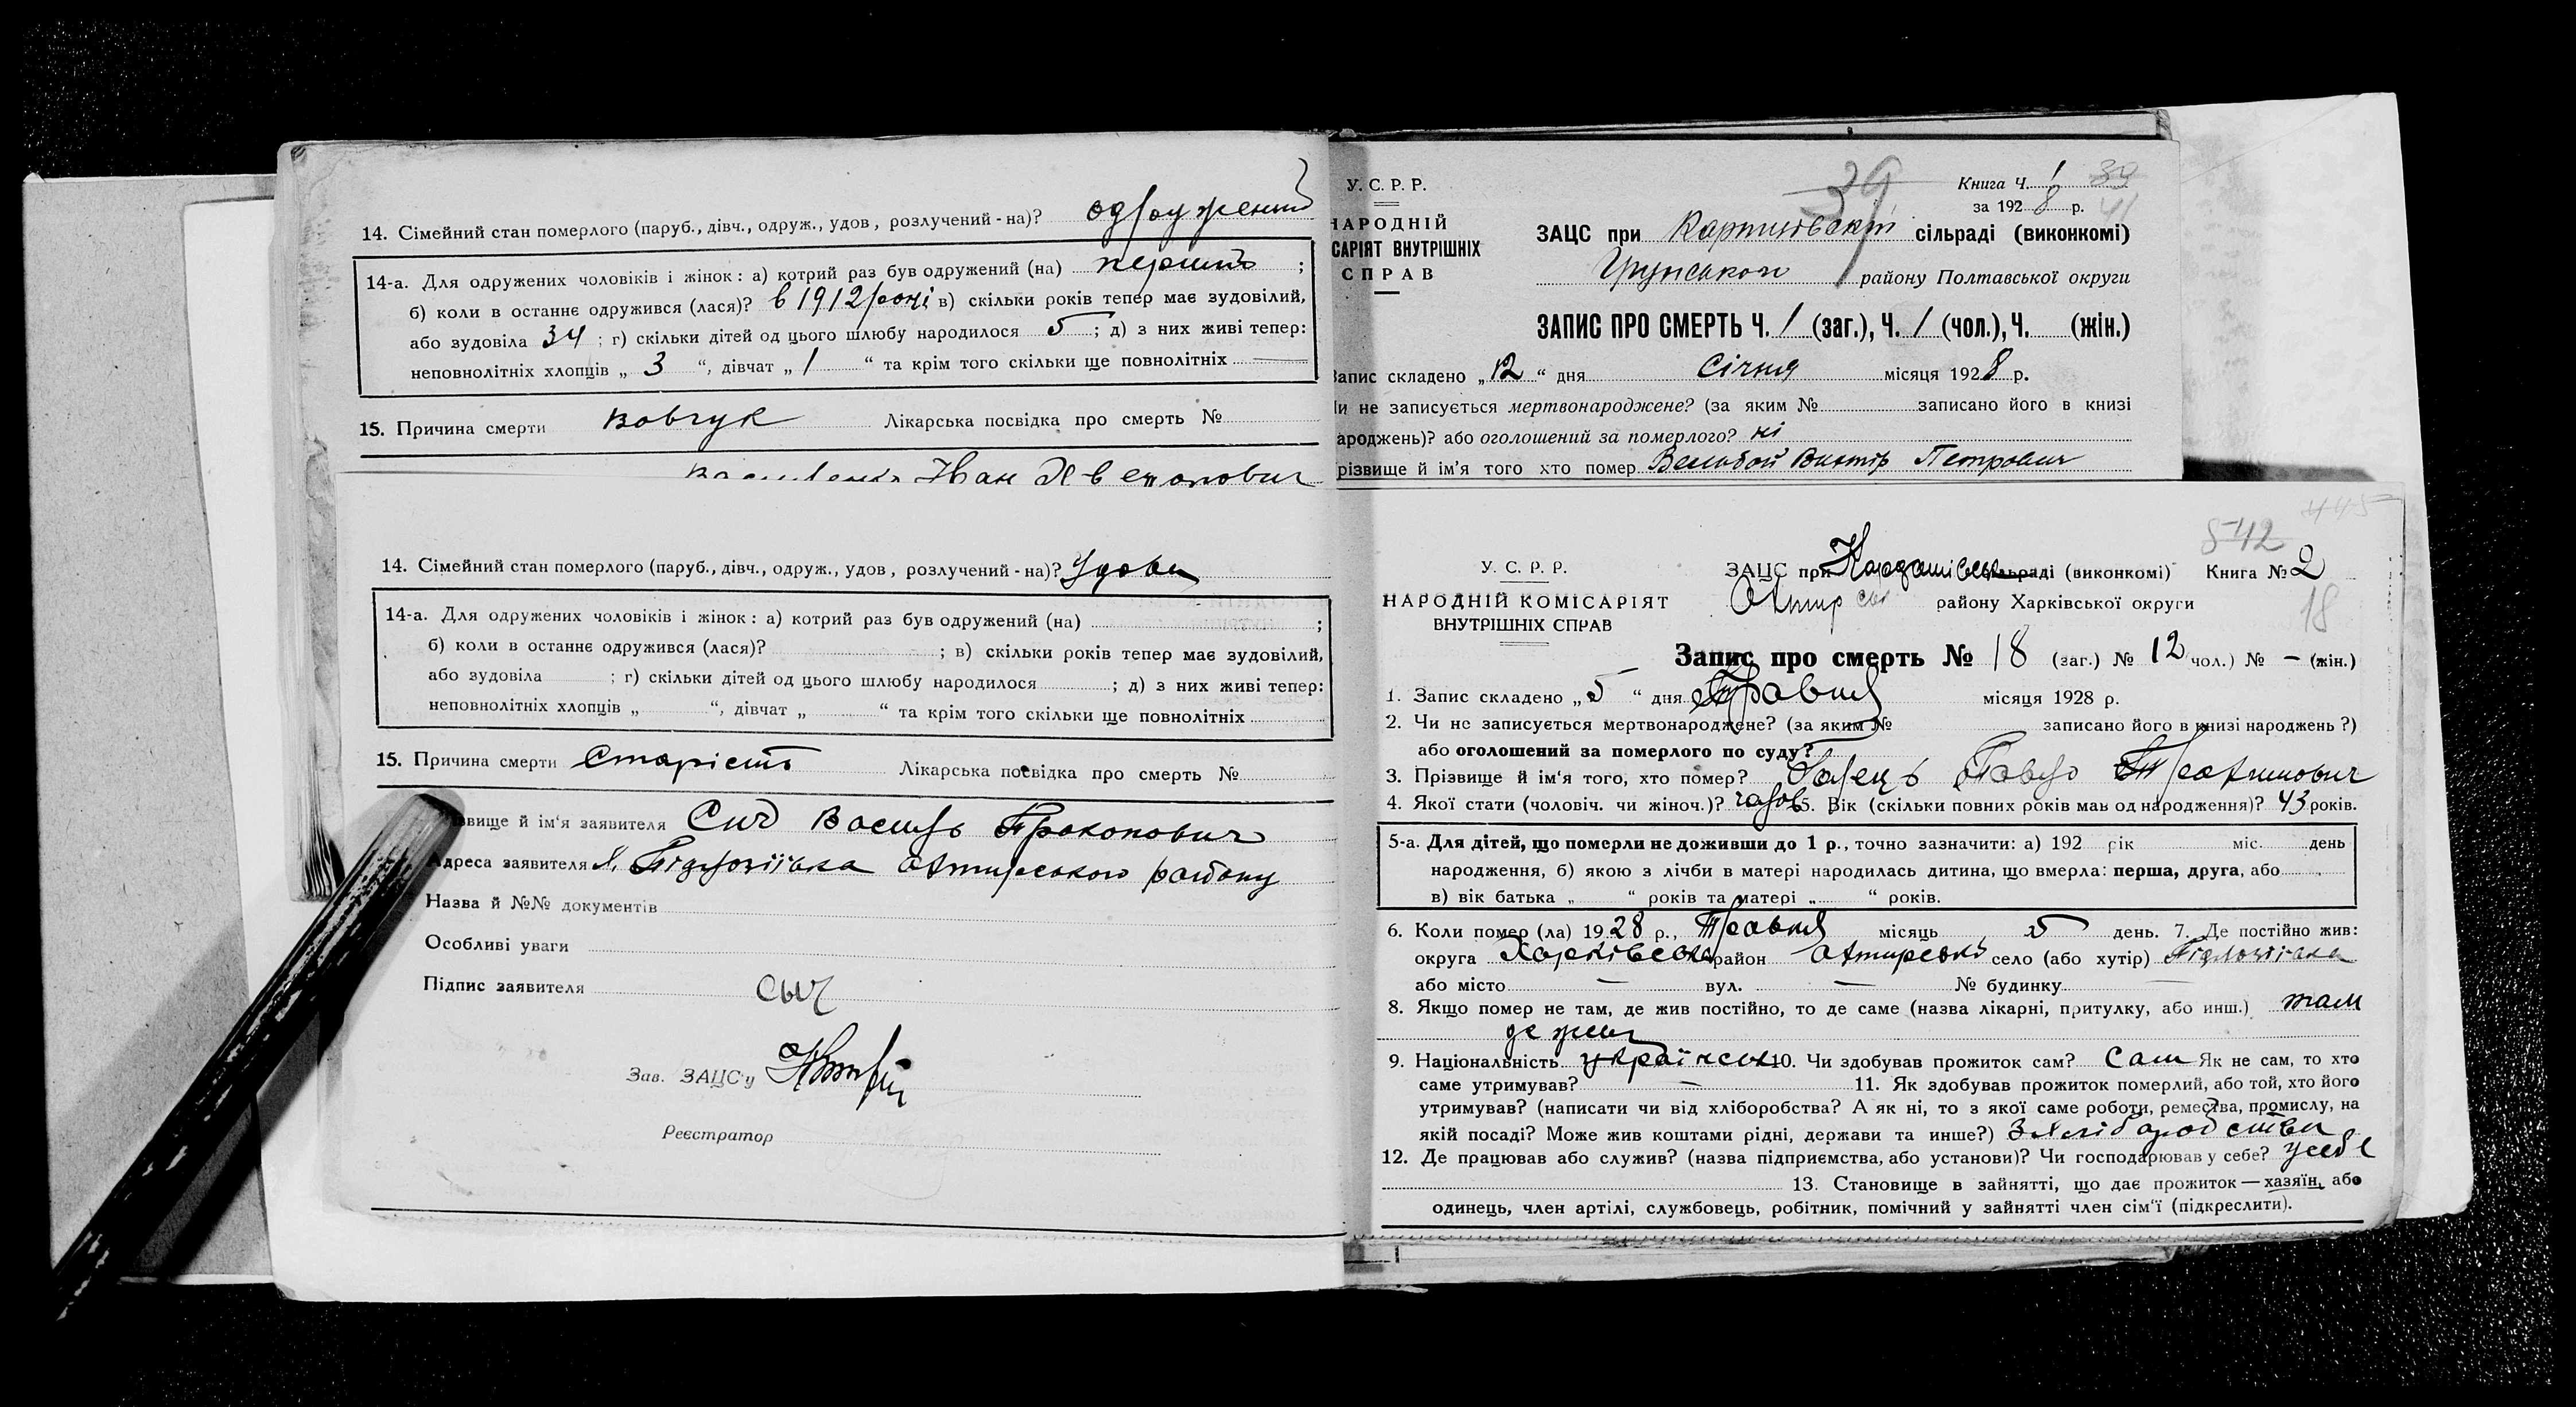 14. Сімейний стан померлого (паруб., дівч., одруж., удов, розлучений-на)? одружений
14-а. Для одружених чоловіків і жінок: а) котрий раз був одружений (на) перший ;
б) коли в останнє одружився (лася)? в 1912 році в) скільки років тепер має зудовілий,
або зудовіла 34 ; г) скільки дітей од цього шлюбу народилося 5 ; д) з них живі тепер:
неповнолітніх хлопців „ 3 “, дівчат „ 1 “ та крім того скільки ще повнолітніх —
15. Причина смерти вовчук Лікарська посвідка про смерть №
Іван
14. Сімейний стан померлого (паруб., дівч., одруж., удов, розлучений-на)? Удови
14-а. Для одружених чоловіків і жінок: а) котрий раз був одружений (на) ;
б) коли в останнє одружився (лася)? ; в) скільки років тепер має зудовілий,
або зудовіла ; г) скільки дітей од цього шлюбу народилося ; д) з них живі тепер:
неповнолітніх хлопців „ “, дівчат „ “ та крім того скільки ще повнолітніх
15. Причина смерти Старість Лікарська посвідка про смерть №
вище й ім‘я заявителя Сич Василь Прокопович
Адреса заявителя Х. Підлозіївка Охтирського району
Назва й №№ документів
Особливі уваги
Підпис заявителя Сыч
Зав. ЗАЦС‘у
Реєстратор
У. С. Р. Р.
НАРОДНІЙ
САРІЯТ ВНУТРІШНІХ
СПРАВ
39
Книга Ч. 1 39
за 192 8 р. 41
ЗАЦС при сільраді (виконкомі)
Грунськом району Полтавської округи
ЗАПИС ПРО СМЕРТЬ Ч. 1 (заг.), Ч. 1 (чол.), Ч. (жін.)
Запис складено „ 12 “ дня Січня місяця 192 8 р.
Чи не записується мертвонароджене? (за яким № записано його в книзі
ароджень)? або оголошений за померлого? ні
різвище й ім‘я того хто помер Виктір Петрович
445
542
У. С. Р. Р.
НАРОДНІЙ КОМІСАРІЯТ
ВНУТРІШНІХ СПРАВ
ЗАЦС при сільраді (виконкомі) Книга № 2
Охтир ськ району Харківської округи 18
Запис про смерть № 18 (заг.) № 12 чол.) № — (жін.)
1. Запис складено „ 5 “ дня Травня місяця 1928 р.
2. Чи не записується мертвонароджене? (за яким № записано його в книзі народжень?)
або оголошений за померлого по суду?
3. Прізвище й ім‘я того, хто помер? Павло Трохимович
4. Якої стати (чоловіч. чи жіноч.)? чолов 5. Вік (скільки повних років мав од народження)? 43 років.
5-а. Для дітей, що померли не доживши до 1 р., точно зазначити: а) 192 рік міс. день
народження, б) якою з лічби в матері народилась дитина, що вмерла: перша, друга, або
в) вік батька „ “ років та матері „ “ років.
6. Коли помер (ла) 19 28 р., Травня місяць 5 день. 7. Де постійно жив:
округа Харківська район Охтирськ село (або хутір) Підлозіівка
або місто — вул. — № будинку —
8. Якщо помер не там, де жив постійно, то де саме (назва лікарні, притулку, або инш.) там
де жив
9. Національність українськ 10. Чи здобував прожиток сам? Сам Як не сам, то хто
саме утримував? — 11. Як здобував прожиток померлий, або той, хто його
утримував? (написати чи від хліборобства? А як ні, то з якої саме роботи, ремества, промислу, на
якій посаді? Може жив коштами рідні, держави та инше?) З хліборобства
12. Де працював або служив? (назва підприємства, або установи)? Чи господарював у себе? у себе
13. Становище в зайнятті, що дає прожиток — хазяїн, або
одинець, член артілі, службовець, робітник, помічний у зайнятті член сім‘ї (підкреслити).